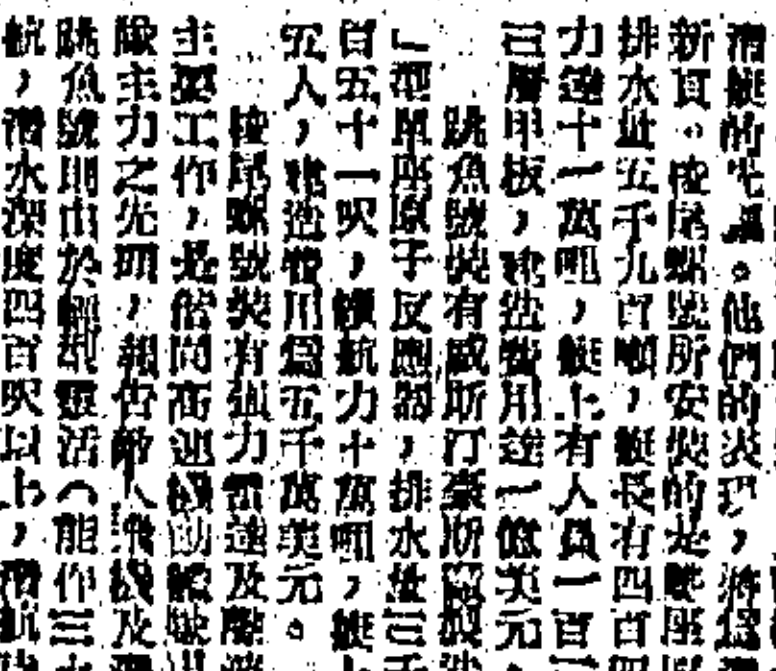 潛艇的先鋒。他們的出現，將爲
新頁。梭尾螺號所安裝的是雙座
排水量五千九百噸，艇長有四百
力達十一萬哩，艇上有人員一百
三層甲板，建造費用達一億美元
跳魚號裝有威斯汀豪斯廠製
」型單座原子反應器，排水量三千
百五十一呎，續航力十萬哩，艇
五人，建造費用爲五千萬美元。
梭尾螺號裝有強力雷達及聲
主要工作，是偕同高速機動艦
隊主力之先頭，報告敵人飛機及
跳魚號則由於輕型靈活（能作三
航，潛水深度四百呎以上，潛航